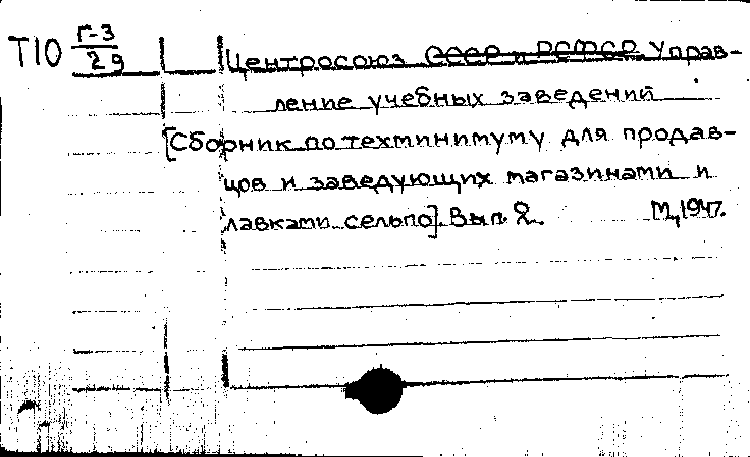 Т10 Г-3
29
Центросоюз СССР и РСФСР Управ-
ление учебных заведений
[Сборник по техминимуму для продав-
цов и заведующих магазинами и
лавками сельпо]. Вып. 2. М., 1947.